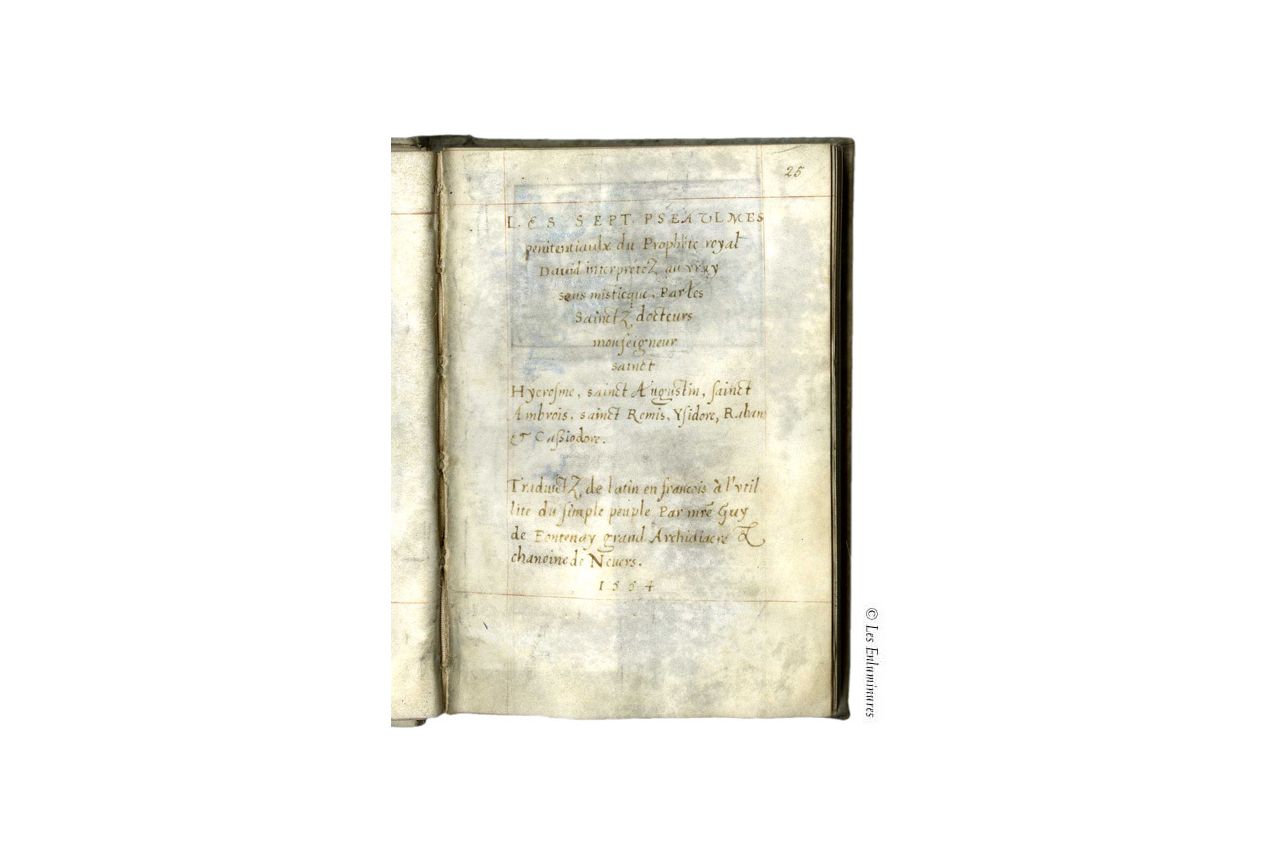 25
LES SEPT PSEAULMES
penitentiaulx du Prophete royal
David interpretez au vray
sens misticque. Par les
Sainctz docteurs
monseigneur
sainct
Hyerosme, sainct Augustin, sainct
Ambrois, sainct Remis, Ysidore, Raban
& Cassiodore.
Traduictz de latin en francois à l'vtil
lite du simple peuple Par mre Guy
de Fontenay grand Archidiacre &
chanoine de Nevers.
1554
© Les Enluminures